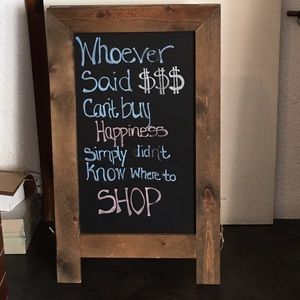 Whoever
Said $$$
Can't buy
Happiness
simply didn't
Know Where to
SHOP